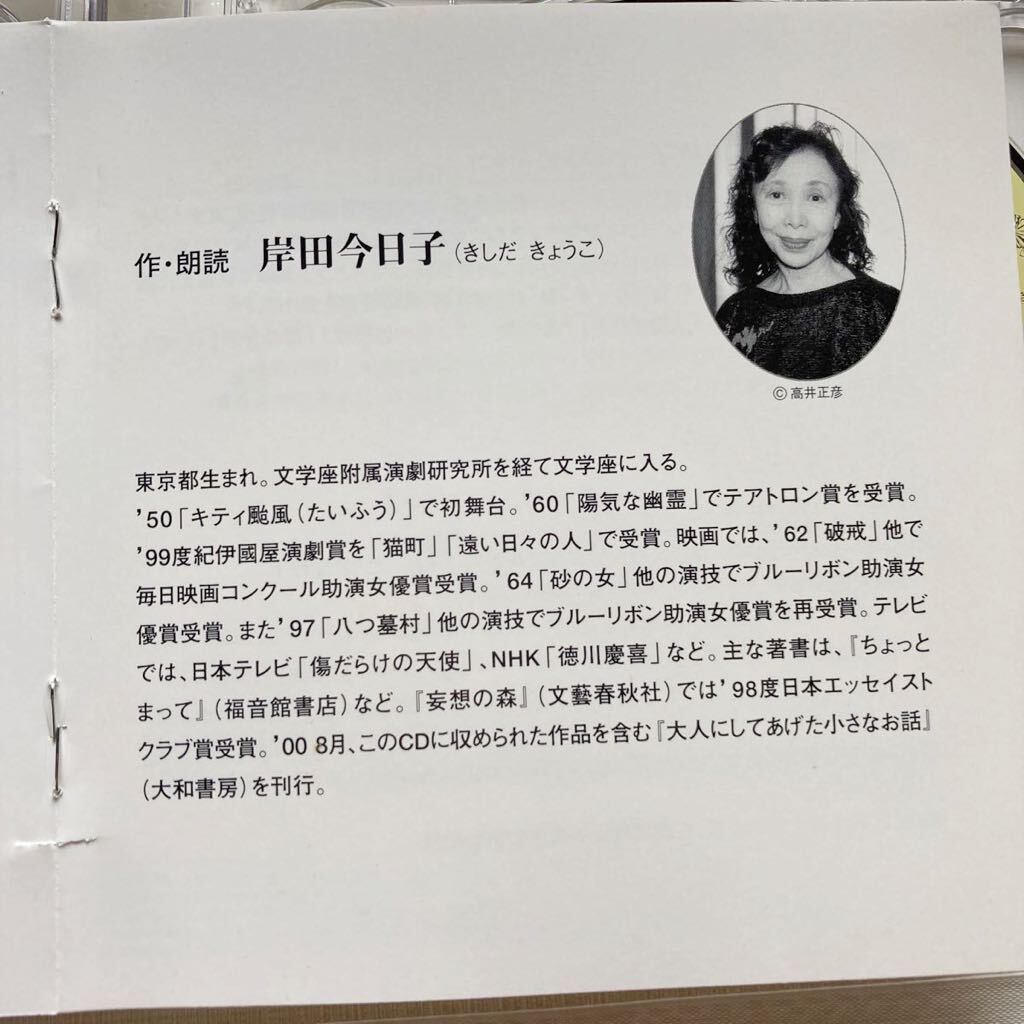 作・朗読 岸田今日子（きしだ きょうこ）
©高井正彦
東京都生まれ。文学座附属演劇研究所を経て文学座に入る。
’50「キティ颱風（たいふう）」で初舞台。’60「陽気な幽霊」でテアトロン賞を受賞。
’99度紀伊國屋演劇賞を「猫町」「遠い日々の人」で受賞。映画では、’62「破戒」他で
毎日映画コンクール助演女優賞受賞。’64「砂の女」他の演技でブルーリボン助演女
優賞受賞。また’97「八つ墓村」他の演技でブルーリボン助演女優賞を再受賞。テレビ
では、日本テレビ「傷だらけの天使」、NHK「徳川慶喜」など。主な著書は、『ちょっと
まって』（福音館書店）など。『妄想の森』（文藝春秋社）では’98度日本エッセイスト
クラブ賞受賞。’00 8月、このCDに収められた作品を含む『大人にしてあげた小さなお話』
（大和書房）を刊行。